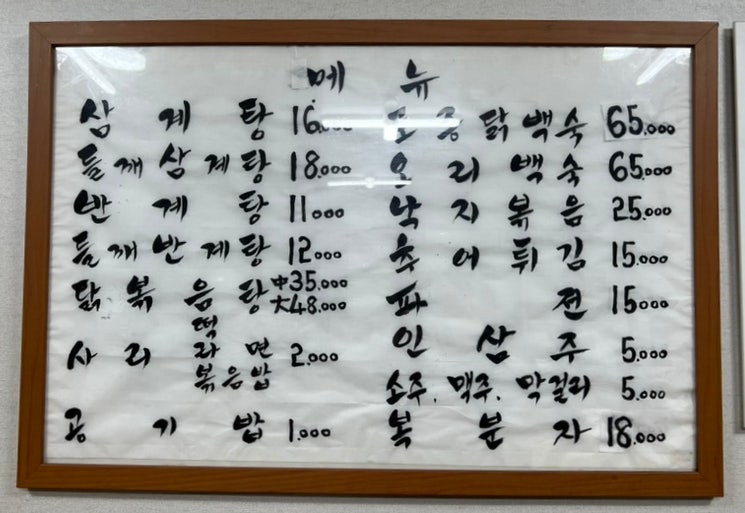 메 뉴
삼 계 탕 16.000
들깨삼계탕 18.000
반 계 탕 11000
들깨반계탕 12.000
닭 볶 음 탕 中35.000
大48.000
사 리 떡 라 면 볶음밥 2.000
공 기 밥 1.000
토종닭백숙 65.000
오 리 백 숙 65.000
낙 지 볶 음 25.000
추 어 튀 김 15.000
파 전 15000
인 삼 주 5.000
소주, 맥주, 막걸리 5.000
복 분 자 18.000